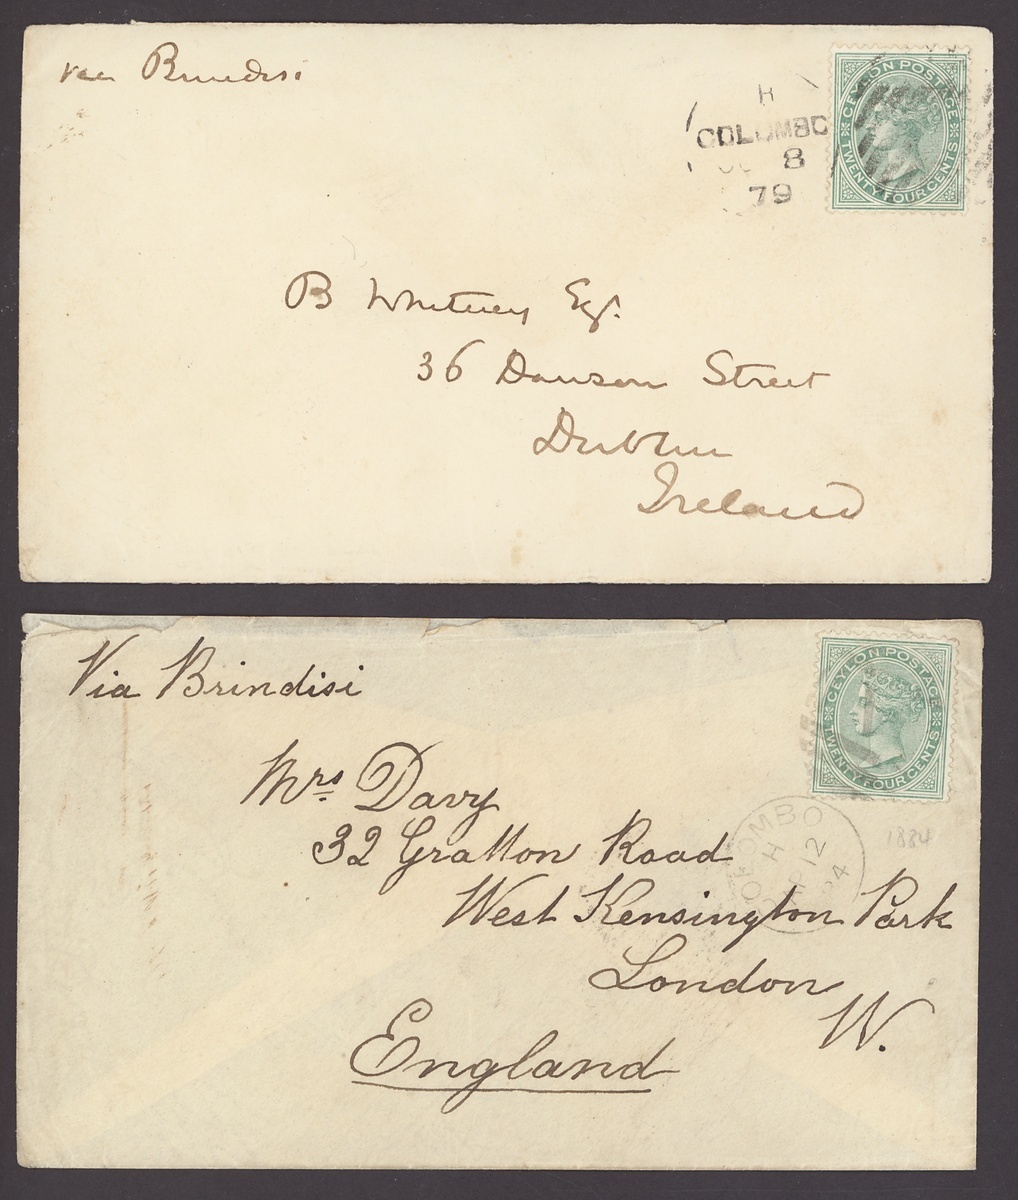 via Brindisi
H
COLOMBO
8
79
CEYLON POSTAGE
TWENTY FOUR CENTS
B Whitney Esqr.
36 Dawson Street
Dublin
Ireland
Via Brindisi
CEYLON POSTAGE
TWENTY FOUR CENTS
Mrs Davy
32 Gratton Road
West Kensington Park
London
W.
England
COLOMBO
H
AP 12
84
1884